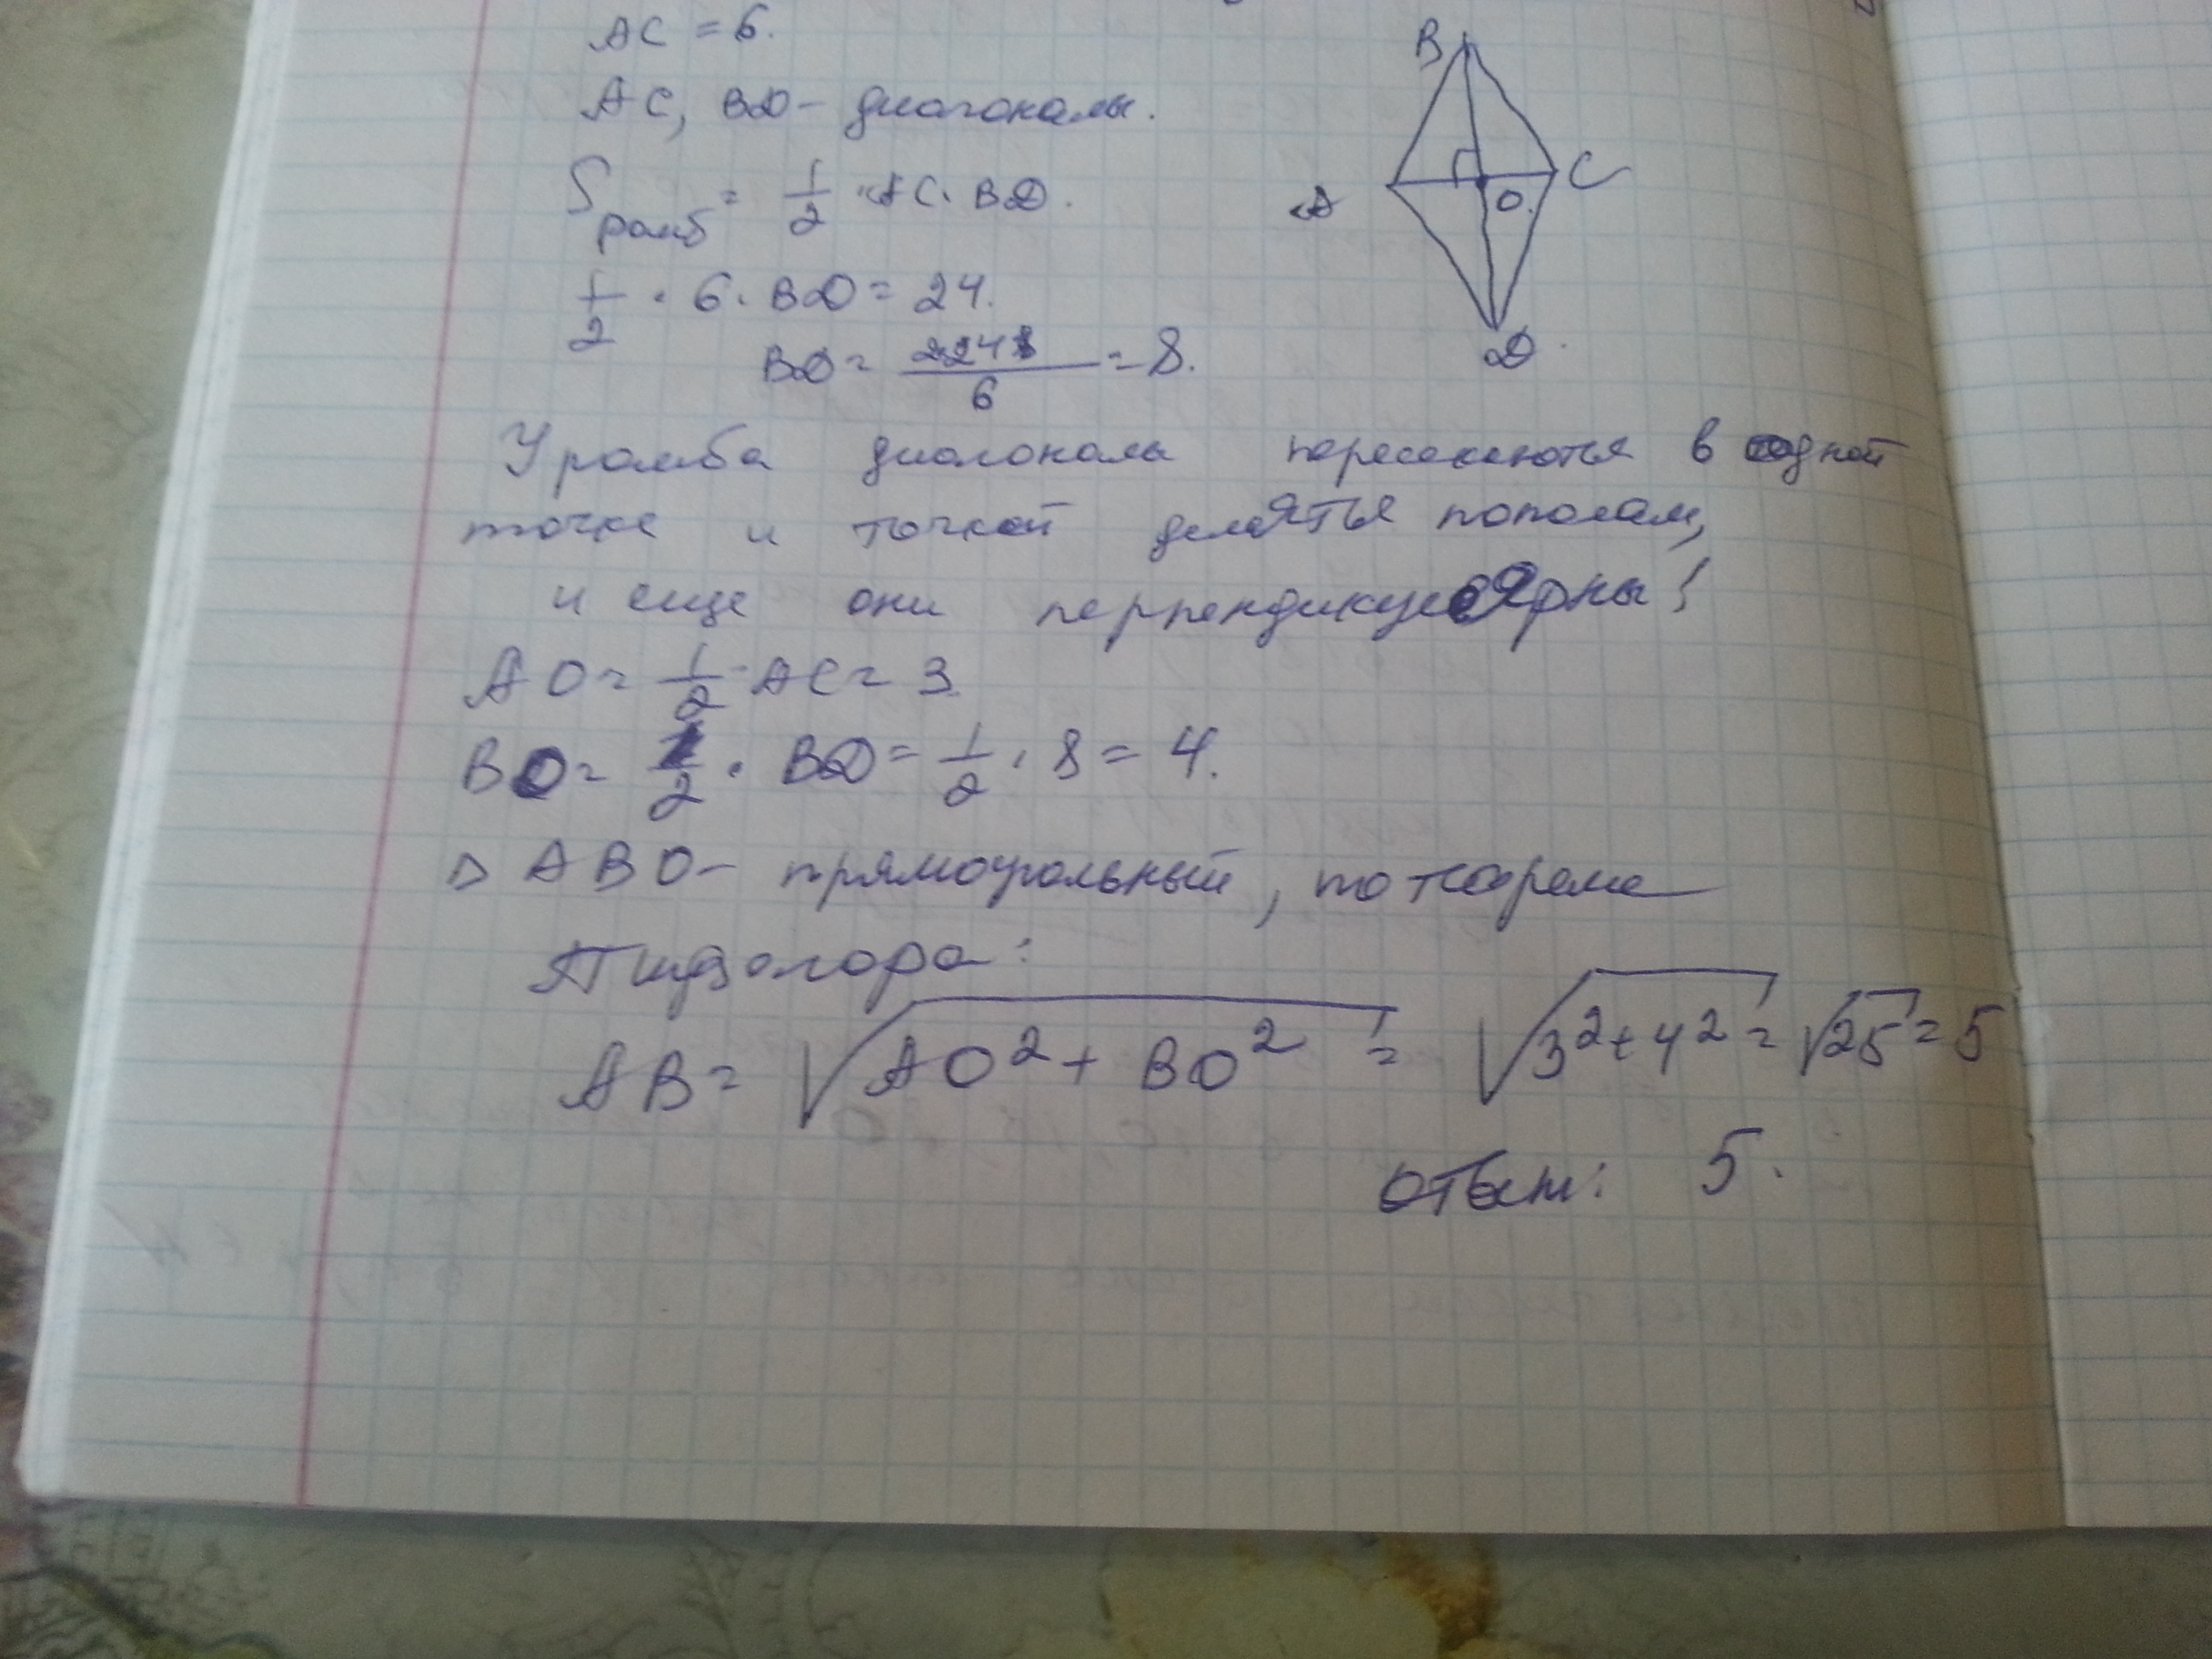 AC = 6.
AC, BD - диагонали.
B
S ромб = 1/2 · AC · BD.
A
O.
C
1/2 · 6 · BD = 24.
BD = 2·24/6 = 8.
D
У ромба диагонали пересекаются в одной
точке и точкой делятся пополам,
и еще они перпендикулярны!
AO = 1/2 · AC = 3
BO = 1/2 · BD = 1/2 · 8 = 4.
△ ABO - прямоугольный, по теореме
Пифагора:
AB = √(AO² + BO²) = √(3² + 4²) = √25 = 5
ответ: 5.